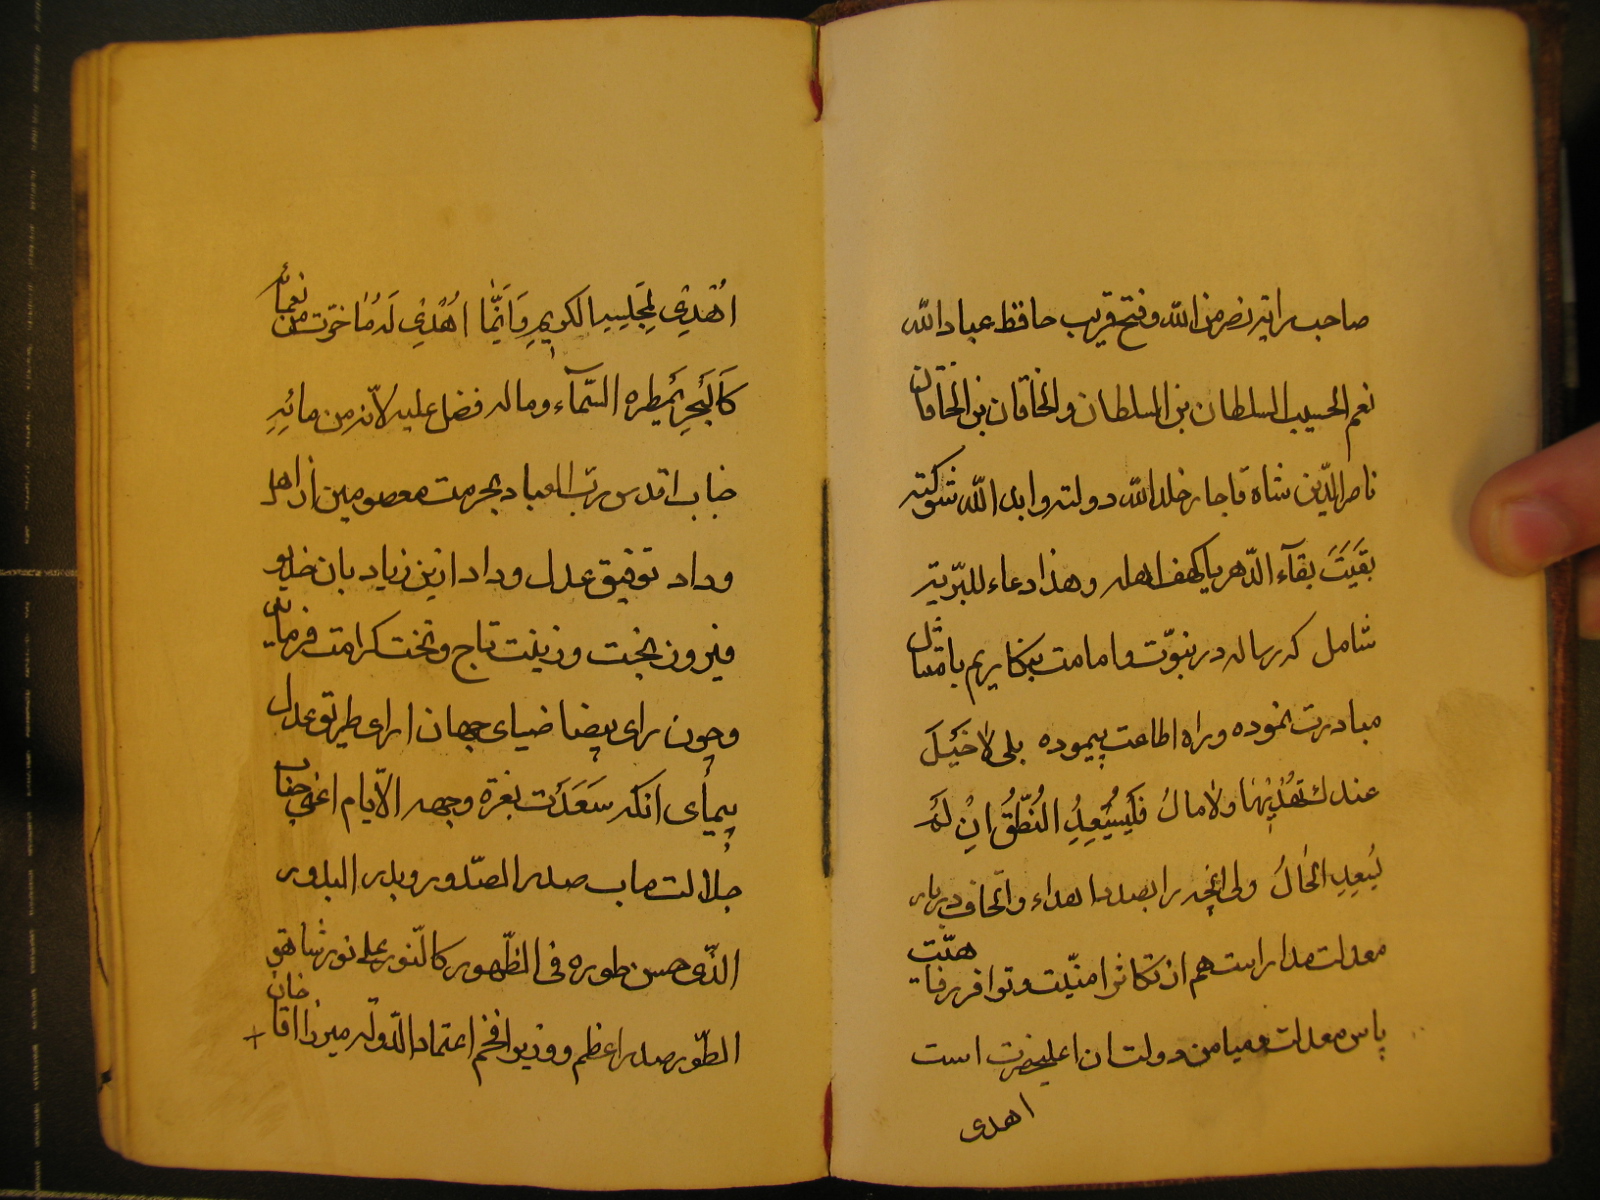 صاحب رایة نصر من الله وفتح قریب حافظ عباد الله
نعم الحسیب السلطان بن السلطان والخاقان بن الخاقان
ناصر الدّین شاه قاجار خلد الله دولته وابد الله شوکته
بقیَتَ بقآء الدّهر یا کهف اهله وهذا دعاء للبرّیة
شامل که رساله در نبوّت و امامت بنگاریم بامتثال
مبادرت نموده وراه اطاعت پیموده بلی لا خَیْلَ
عندك تُهْدِیْهَا ولا مالُ فَلْیُسْعِدِ النُّطْقُ اِنْ لَمْ
یُسْعِدِ الْحَالُ ولی انچه را بصدد اهداء واتّحاف دربار
معدلت مدار است هم از تکاثر امنیّت وتوافر رفاهیّت
پاس معدلت ومیامن دولت ان اعلیحضرت است
اهدی
اُهْدِیْ لِمَجْلِسِهِ الکریمِ وَاَنَّمَا اُهْدِیْ لَهُ مَا حُزْت من نعمائه
کَالْبَحْرِ یُمْطِره السَّمآء وماله فضل علیه لاَنّه من مائِهِ
جناب اقدس ربّ العباد بحرمت معصومین از اهل
وداد توفیق عدل وداد ازین زیاد بان خدیو
فیروز بخت وزینت تاج وتخت کرامت فرماید
وچون رای بیضا ضیای جهان ارای طریق عدل
پیمای انکه سَعَدَت بغرة وجهه الاَیّام اعنی جناب
جلالت ماب صدر الصّدور وبدر البدور
الّذی حسن طوره فی الظّهور کالنّور علی نور شاهق
الطّور صدر اعظم ووزیر افخم اعتماد الدّوله میرزا اقا خان